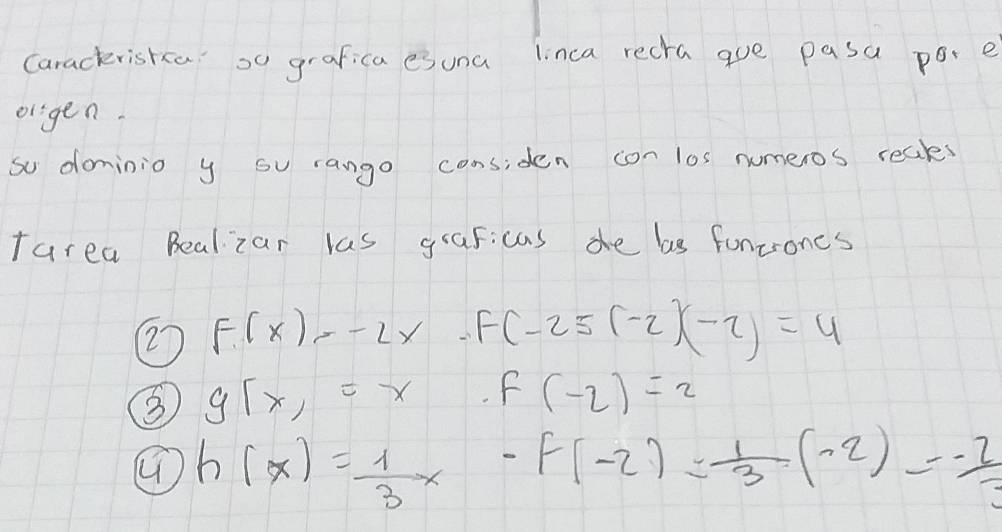 Caracteristica: su grafica es una linea recta que pasa por el
origen.
su dominio y su rango considen con los numeros reales
Tarea Realizar las graficas de las funciones
② F(x) = -2x . F(-2 = (-2)(-2) = 4
③ g(x) = x . F(-2) = 2
④ h(x) = 1/3 x - F(-2) = 1/3 (-2) = -2/3